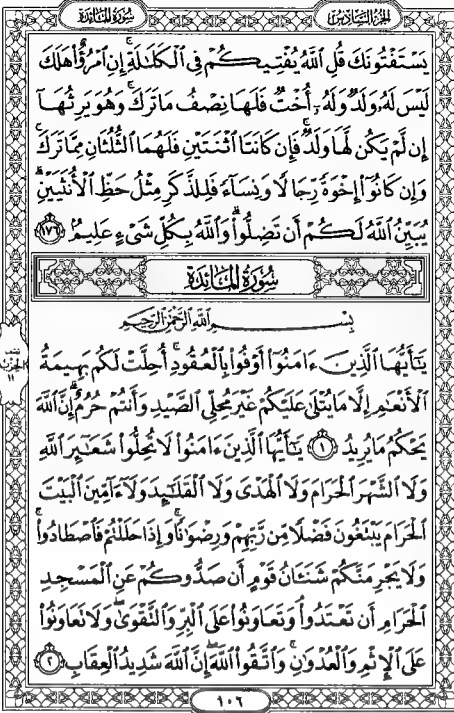 سُورَةُ المَائِدَةِ
الجُزْءُ السَّادِسُ
يَسْتَفْتُونَكَ قُلِ ٱللَّهُ يُفْتِيكُمْ فِى ٱلْكَلَٰلَةِ ۚ إِنِ ٱمْرُؤٌا۟ هَلَكَ
لَيْسَ لَهُۥ وَلَدٌ وَلَهُۥٓ أُخْتٌ فَلَهَا نِصْفُ مَا تَرَكَ ۚ وَهُوَ يَرِثُهَآ
إِن لَّمْ يَكُن لَّهَا وَلَدٌ ۚ فَإِن كَانَتَا ٱثْنَتَيْنِ فَلَهُمَا ٱلثُّلُثَانِ مِمَّا تَرَكَ ۚ
وَإِن كَانُوٓا۟ إِخْوَةً رِّجَالًا وَنِسَآءً فَلِلذَّكَرِ مِثْلُ حَظِّ ٱلْأُنثَيَيْنِ ۗ
يُبَيِّنُ ٱللَّهُ لَكُمْ أَن تَضِلُّوا۟ ۗ وَٱللَّهُ بِكُلِّ شَىْءٍ عَلِيمٌۢ ١٧٦
سُورَةُ المَائِدَةِ
بِسْمِ ٱللَّهِ ٱلرَّحْمَٰنِ ٱلرَّحِيمِ
يَٰٓأَيُّهَا ٱلَّذِينَ ءَامَنُوٓا۟ أَوْفُوا۟ بِٱلْعُقُودِ ۚ أُحِلَّتْ لَكُم بَهِيمَةُ
ٱلْأَنْعَٰمِ إِلَّا مَا يُتْلَىٰ عَلَيْكُمْ غَيْرَ مُحِلِّى ٱلصَّيْدِ وَأَنتُمْ حُرُمٌ ۗ إِنَّ ٱللَّهَ
يَحْكُمُ مَا يُرِيدُ ١ يَٰٓأَيُّهَا ٱلَّذِينَ ءَامَنُوا۟ لَا تُحِلُّوا۟ شَعَٰٓئِرَ ٱللَّهِ
وَلَا ٱلشَّهْرَ ٱلْحَرَامَ وَلَا ٱلْهَدْىَ وَلَا ٱلْقَلَٰٓئِدَ وَلَآ ءَآمِّينَ ٱلْبَيْتَ
ٱلْحَرَامَ يَبْتَغُونَ فَضْلًا مِّن رَّبِّهِمْ وَرِضْوَٰنًا ۚ وَإِذَا حَلَلْتُمْ فَٱصْطَادُوا۟ ۚ
وَلَا يَجْرِمَنَّكُمْ شَنَـَٔانُ قَوْمٍ أَن صَدُّوكُمْ عَنِ ٱلْمَسْجِدِ
ٱلْحَرَامِ أَن تَعْتَدُوا۟ ۘ وَتَعَاوَنُوا۟ عَلَى ٱلْبِرِّ وَٱلتَّقْوَىٰ ۖ وَلَا تَعَاوَنُوا۟
عَلَى ٱلْإِثْمِ وَٱلْعُدْوَٰنِ ۚ وَٱتَّقُوا۟ ٱللَّهَ ۖ إِنَّ ٱللَّهَ شَدِيدُ ٱلْعِقَابِ ٢
نصف
الحزب
١١
١٠٦